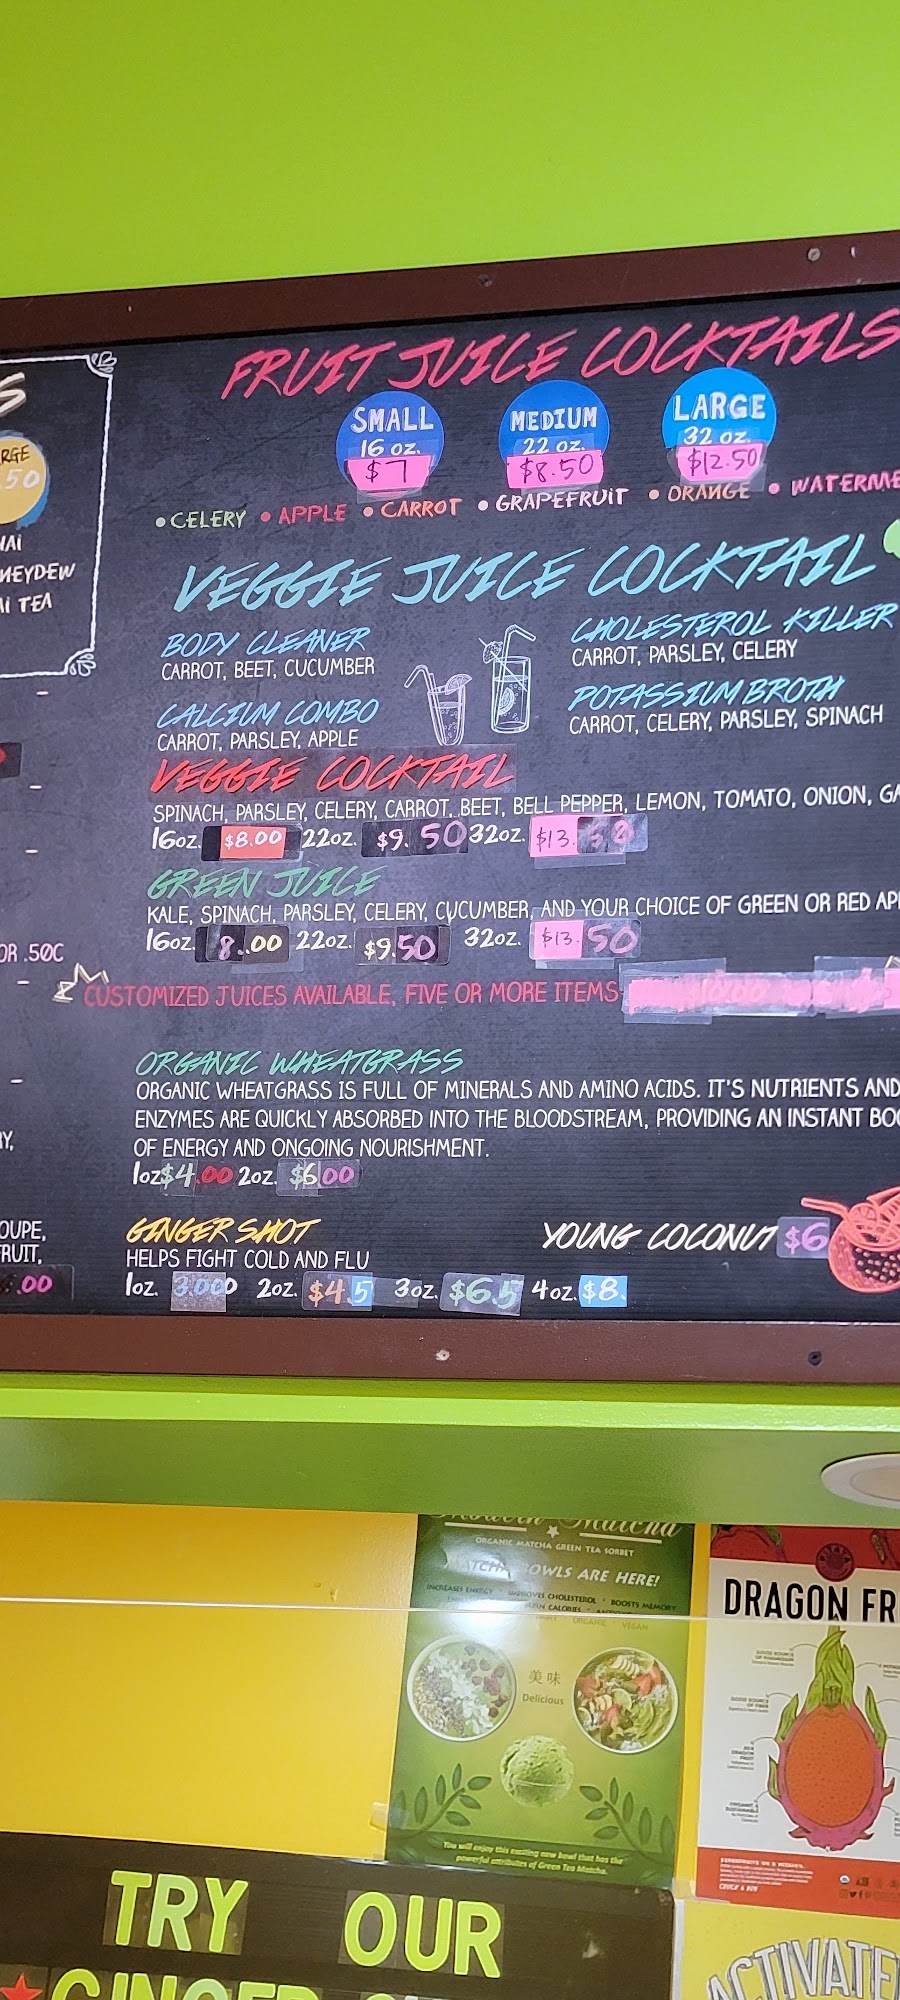 FRUIT JUICE COCKTAILS
SMALL
16 oz.
$7
MEDIUM
22 oz.
$8.50
LARGE
32 oz.
$12.50
• CELERY • APPLE • CARROT • GRAPEFRUIT • ORANGE • WATERME
VEGGIE JUICE COCKTAIL
BODY CLEANER
CARROT, BEET, CUCUMBER
CHOLESTEROL KILLER
CARROT, PARSLEY, CELERY
CALCIUM COMBO
CARROT, PARSLEY, APPLE
POTASSIUM BROTH
CARROT, CELERY, PARSLEY, SPINACH
VEGGIE COCKTAIL
SPINACH, PARSLEY, CELERY, CARROT, BEET, BELL PEPPER, LEMON, TOMATO, ONION, GA
16oz. $8.00 22oz. $9.50 32oz. $13.
GREEN JUICE
KALE, SPINACH, PARSLEY, CELERY, CUCUMBER, AND YOUR CHOICE OF GREEN OR RED AP
16oz. 8.00 22oz. $9.50 32oz. $13.50
CUSTOMIZED JUICES AVAILABLE, FIVE OR MORE ITEMS
ORGANIC WHEATGRASS
ORGANIC WHEATGRASS IS FULL OF MINERALS AND AMINO ACIDS. IT'S NUTRIENTS AND
ENZYMES ARE QUICKLY ABSORBED INTO THE BLOODSTREAM, PROVIDING AN INSTANT BOO
OF ENERGY AND ONGOING NOURISHMENT.
1oz $4.00 2oz. $6.00
GINGER SHOT
HELPS FIGHT COLD AND FLU
1oz. 2oz. $4.5 3oz. $6.5 4oz. $8.
YOUNG COCONUT $6
S
RGE
.50
HAI
NEYDEW
AI TEA
OR .50C
RY,
OUPE,
FRUIT,
.00
Matcha
ORGANIC MATCHA GREEN TEA SORBET
MATCHA BOWLS ARE HERE!
INCREASES ENERGY • IMPROVES CHOLESTEROL • BOOSTS MEMORY
CALORIES
ORGANIC • VEGAN
美味
Delicious
You will enjoy this exciting new bowl that has the
powerful attributes of Green Tea Matcha.
DRAGON FR
TRY OUR
GINGER
ACTIVATE